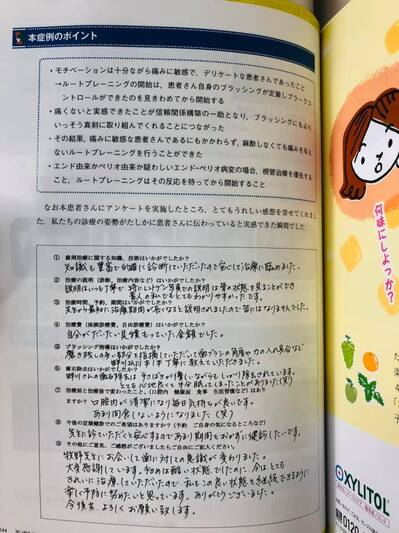 本症例のポイント
・モチベーションは十分ながら痛みに敏感で、デリケートな患者さんであったこと
→ルートプレーニングの開始は、患者さん自身のブラッシングが定着しプラークコ
ントロールができたのを見きわめてから開始する
・痛くないと実感できたことが信頼関係構築の一助となり、ブラッシングにもより
いっそう真剣に取り組んでくれることにつながった
・その結果、痛みに敏感な患者さんであるにもかかわらず、麻酔しなくても痛みを与え
ないルートプレーニングを行うことができた
・エンド由来かペリオ由来か疑わしいエンド-ペリオ病変の場合、根管治療を優先する
こと、ルートプレーニングはその反応を待ってから開始すること
なお本患者さんにアンケートを実施したところ、とてもうれしい感想を寄せてくれまし
た。私たちの診療の姿勢がたしかに患者さんに伝わっていると実感できた瞬間でした
① 歯周治療に関する知識、技術はいかがでしたか?
知識も豊富で的確に診断していただいたので安心して治療に臨めました。
② 治療の説明（診断、治療内容など）はいかがでしたか?
説明はいつも丁寧で 特にレントゲン写真での説明は骨の状態を見ることができ
素人の私でもとてもわかりやすかったです。
③ 治療時間、予約、期間はいかがでしたか?
先生から最初に治療期間が長くなると説明されましたので苦にはなりませんでした。
④ 治療費（保険診療費、自由診療費）はいかがでしたか?
自分がだいたい見積もっていた金額でした。
⑤ ブラッシング指導はいかがでしたか?
磨き残しの多い部分を指摘していただいて歯ブラシの角度や力の入れ具合など
野村さんに1本1本丁寧に教えていただきました。
⑥ 歯石除去はいかがでしたか?
野村さんの歯石除去は
とても心地良くて半分眠ってしまったことがありました(笑)
⑦ 治療前と治療後で変わったこと、(口腔内 健康面 食事 生活習慣など)はあり
ますか?
口腔内が清潔になり毎日気持ちが良いです。
あまり間食しないようになりました(笑)
⑧ 今後の定期健診でのご希望はありますか?(予約 ご自身の気になるところなど)
先生に診ていただくと安心するのであまり期間をおかずに健診したいです。
⑨ その他にご意見、ご感想がございましたらご自由にご記入ください。
牧野先生にお会いして歯に対しての意識が変わりました。
大変感謝しています。初めは酷い状態でしたのに、今はとても
きれいに治療していただいたので 私もこの良い状態を継続できるように
楽しく予防に努めたいと思っています。ありがとうございました。
今後共 よろしくお願い致します。
何味にしよっか?
XYLITOL
0120